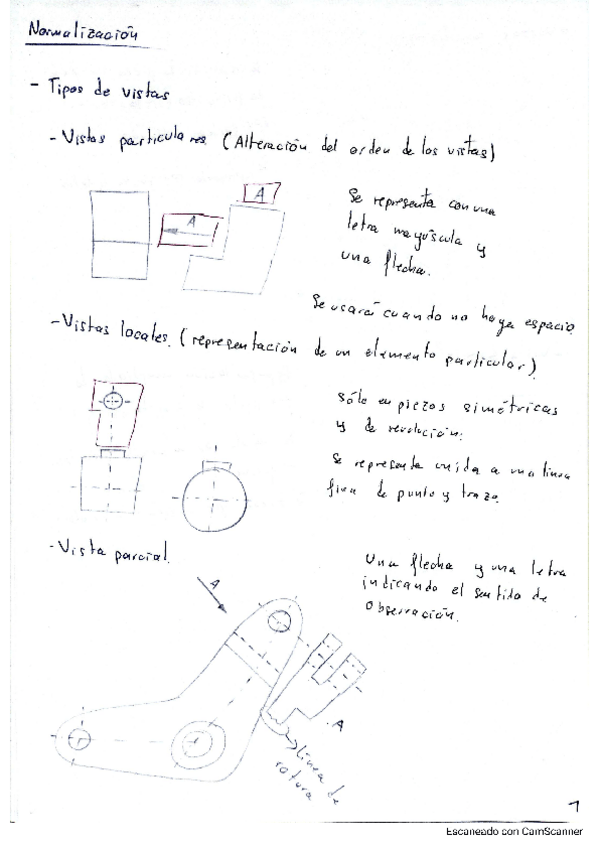 Normalización
- Tipos de vistas
- Vistas particulares (Alteración del orden de las vistas)
A
A
Se representa con una
letra mayúscula y
una flecha.
Se usará cuando no haya espacio.
- Vistas locales. (representación de un elemento particular)
Sólo en piezas simétricas
y de revolución.
Se representa unida a una línea
fina de punto y trazo.
- Vista parcial.
Una flecha y una letra
indicando el sentido de
observación.
A
.A
línea de
rotura
1
Escaneado con CamScanner